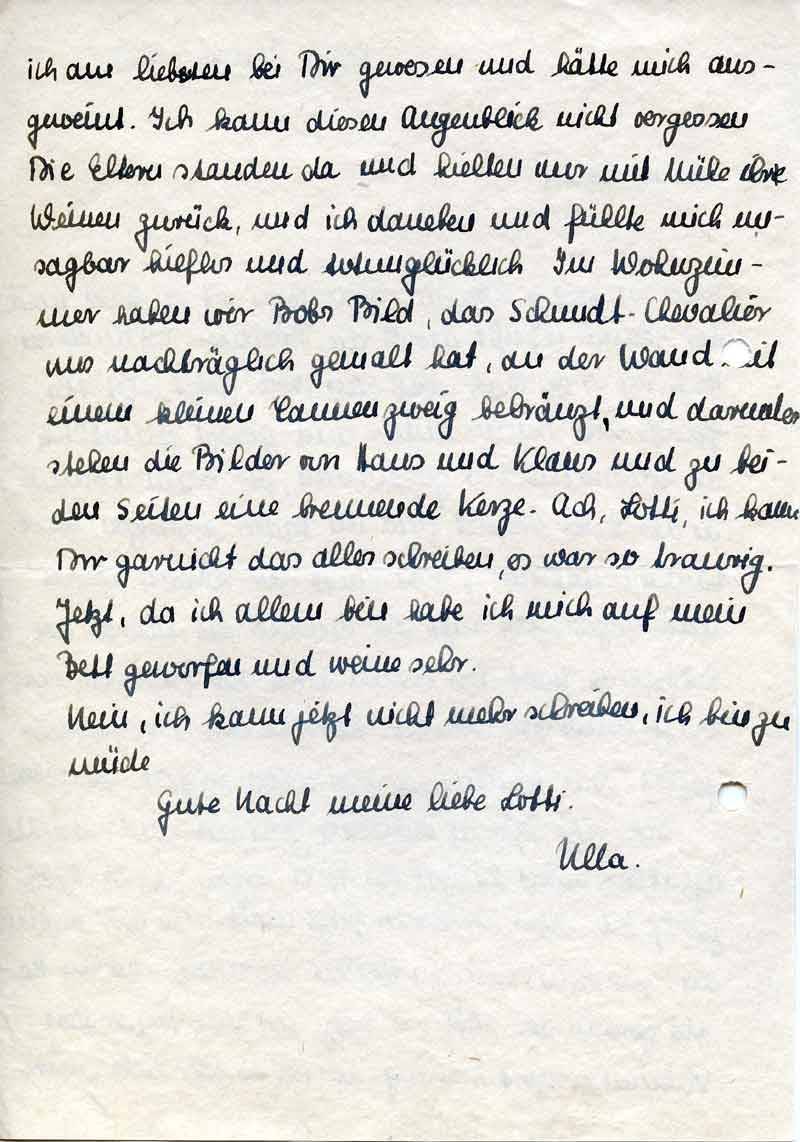 ich am liebsten bei Dir gewesen und hätte mich aus-
geweint. Ich kann diesen Augenblick nicht vergessen
Die Eltern standen da und hielten nur mit Mühe ihre
Weinen zurück, und ich daneben und fühlte mich un-
sagbar hilflos und totunglücklich Im Wohnzim-
mer haben wir Bobs Bild, das Schmidt-Chevalier
uns nachträglich gemalt hat, an der Wand mit
einem kleinen Tannenzweig bekränzt, und darunter
stehen die Bilder von Hans und Klaus und zu bei-
den Seiten eine brennende Kerze. Ach, Lotti, ich kann
Dir garnicht das alles schreiben, es war so traurig.
Jetzt, da ich allein bin habe ich mich auf mein
Bett geworfen und weine sehr.
Nein, ich kann jetzt nicht mehr schreiben, ich bin zu
müde
Gute Nacht meine liebe Lotti.
Ulla.